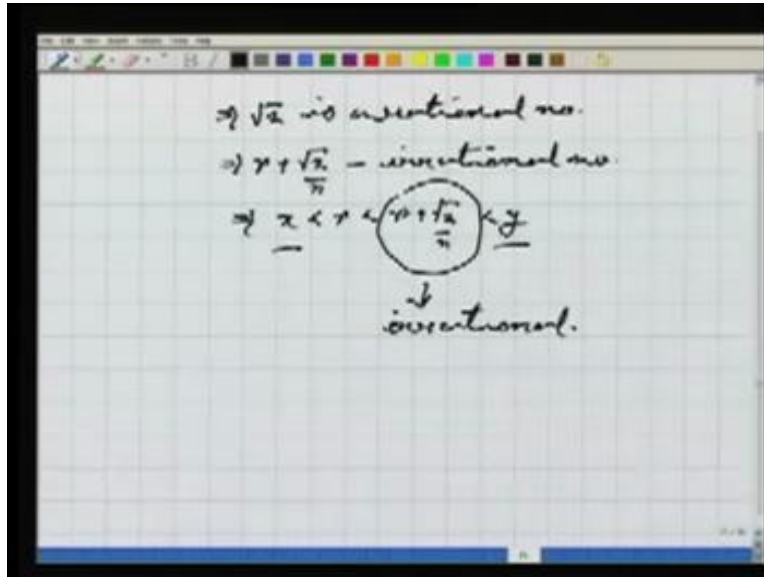 ⇒ √2 is a rational no.
⇒ r + √2/n – irrational no.
⇒ x < r < r + √2/n < y
↓
irrational.